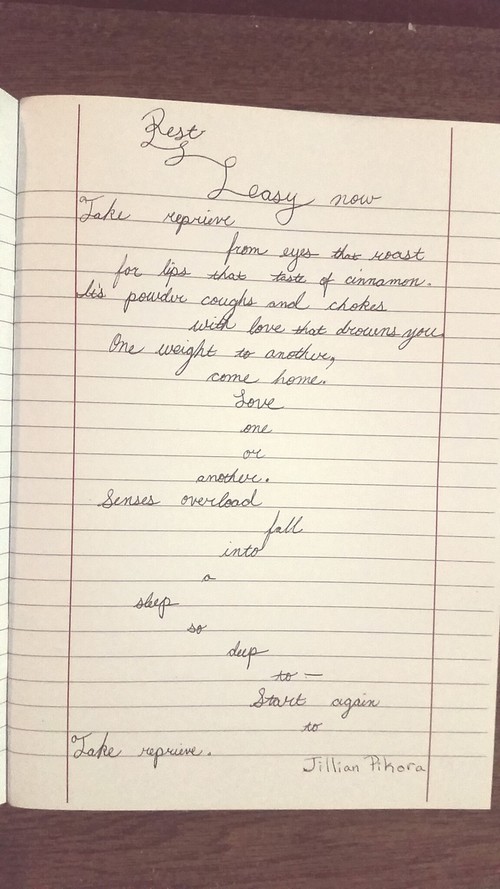 Rest
easy now
Take reprieve
from eyes that roast
for lips that taste of cinnamon.
It's powder coughs and chokes
with love that drowns you.
One weight to another,
come home.
Love
one
or
another.
Senses overload
fall
into
a
sleep
so
deep
to —
Start again
to
Take reprieve.
Jillian Pikora